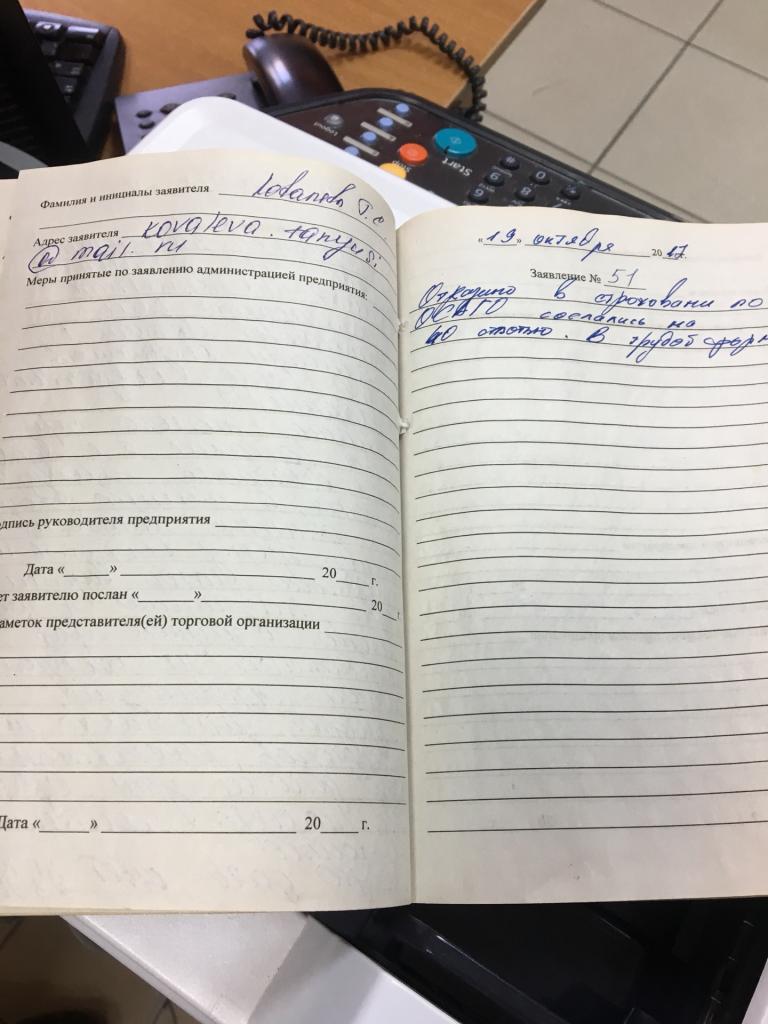 Фамилия и инициалы заявителя Ковалева Т.С
Адрес заявителя kovaleva.tanyusi
@mail.ru
Меры принятые по заявлению администрацией предприятия:
одпись руководителя предприятия
Дата «____» ____ 20__ г.
ет заявителю послан «____» ____ 20__ г
аметок представителя(ей) торговой организации
Дата «____» ____ 20__ г.
«19» октября 2017
Заявление № 51
Отказано в строховани по
ОСАГО сослались на
40 статью. В грубой форм
Start
Stop
Logout